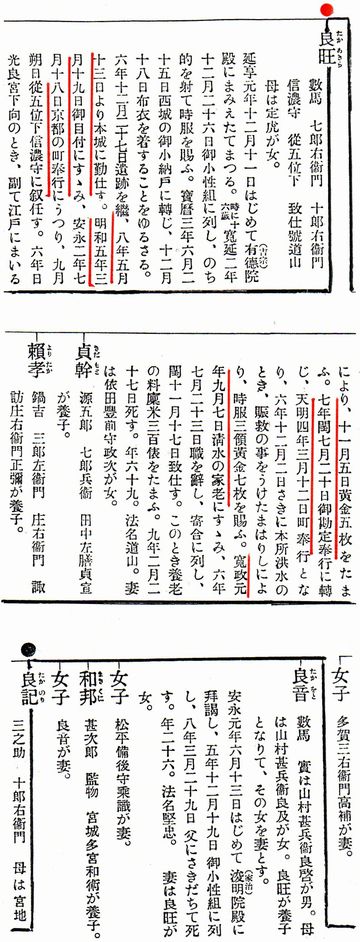 良旺
たか あきら
數馬 七郎右衞門 十郎右衞門
信濃守 從五位下 致仕號道山
母は定虎が女。
延享元年十二月十一日はじめて有德院
(吉宗)
殿にまみえたてまつる。
時に十六歲
寬延二年
十二月二十六日御小性組に列し、のち
的を射て時服を賜ふ。寶曆三年六月二
十五日西城の御小納戶に轉じ、十二月
十八日布衣を着することをゆるさる。
六年十二月二十七日遺跡を繼、八年五月
十三日より本城に勤仕す。明和五年三
月十九日御目付にすゝみ、安永二年七
月十八日京都の町奉行にうつり、九月
朔日從五位下信濃守に叙任す。六年日
光良宮下向のとき、副て江戶にまいる
により、十一月五日黃金五枚をたま
ふ。七年閏七月二十日御勘定奉行に轉
じ、天明四年三月十二日町奉行とな
り、六年十二月二日さきに本所洪水の
とき、賑救の事をうけたまはりしによ
り、時服三領黃金七枚を賜ふ。寬政元
年九月七日淸水の家老にすゝみ、六年
七月二十三日職を辭し、寄合に列し、
閏十一月十七日致仕す。このとき養老
の料廩米三百俵をたまふ。九年二月二
十七日死す。年六十九。法名道山。妻
は依田豐前守政次が女。
貞幹
源五郎 七郎兵衞 田中左膳貞宣
が養子。
賴孝
よりたか
鍋吉 三郎左衞門 庄右衞門 諏
訪庄右衞門正彌が養子。
女子
多賀三右衞門高補が妻。
良音
たか おと
數馬 實は山村甚兵衞良啓が男。母
は山村甚兵衞良及が女。良旺が養子
となりて、その女を妻とす。
安永元年六月十三日はじめて浚明院殿に
(家治)
拜謁し、五年十二月十九日御小性組に列
し、八年三月二十九日父にさきだちて死
す。年二十六。法名堅忠。妻は良旺が
女。
女子
松平備後守乘識が妻。
和邦
甚次郎 監物 宮城多宮和術が養子。
女子
良音が妻。
良記
たか のり
三之助 十郎右衞門 母は宮地